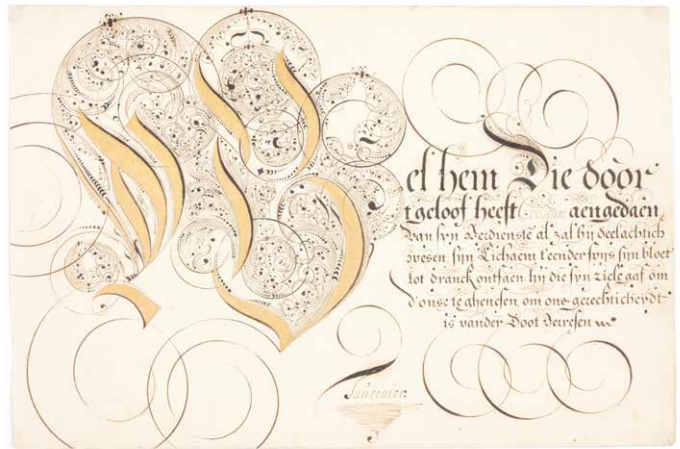 Wel hem Die door
t geloof heeft aengedaen
van syn Verdienste al zal hy deelachtich
wesen syn Lichaem t'eender spys syn bloet
tot dranck ontfaen hy die syn ziele gaf om
d'onse te ghenesen om ons gerechticheydt
is vander Doot Verresen